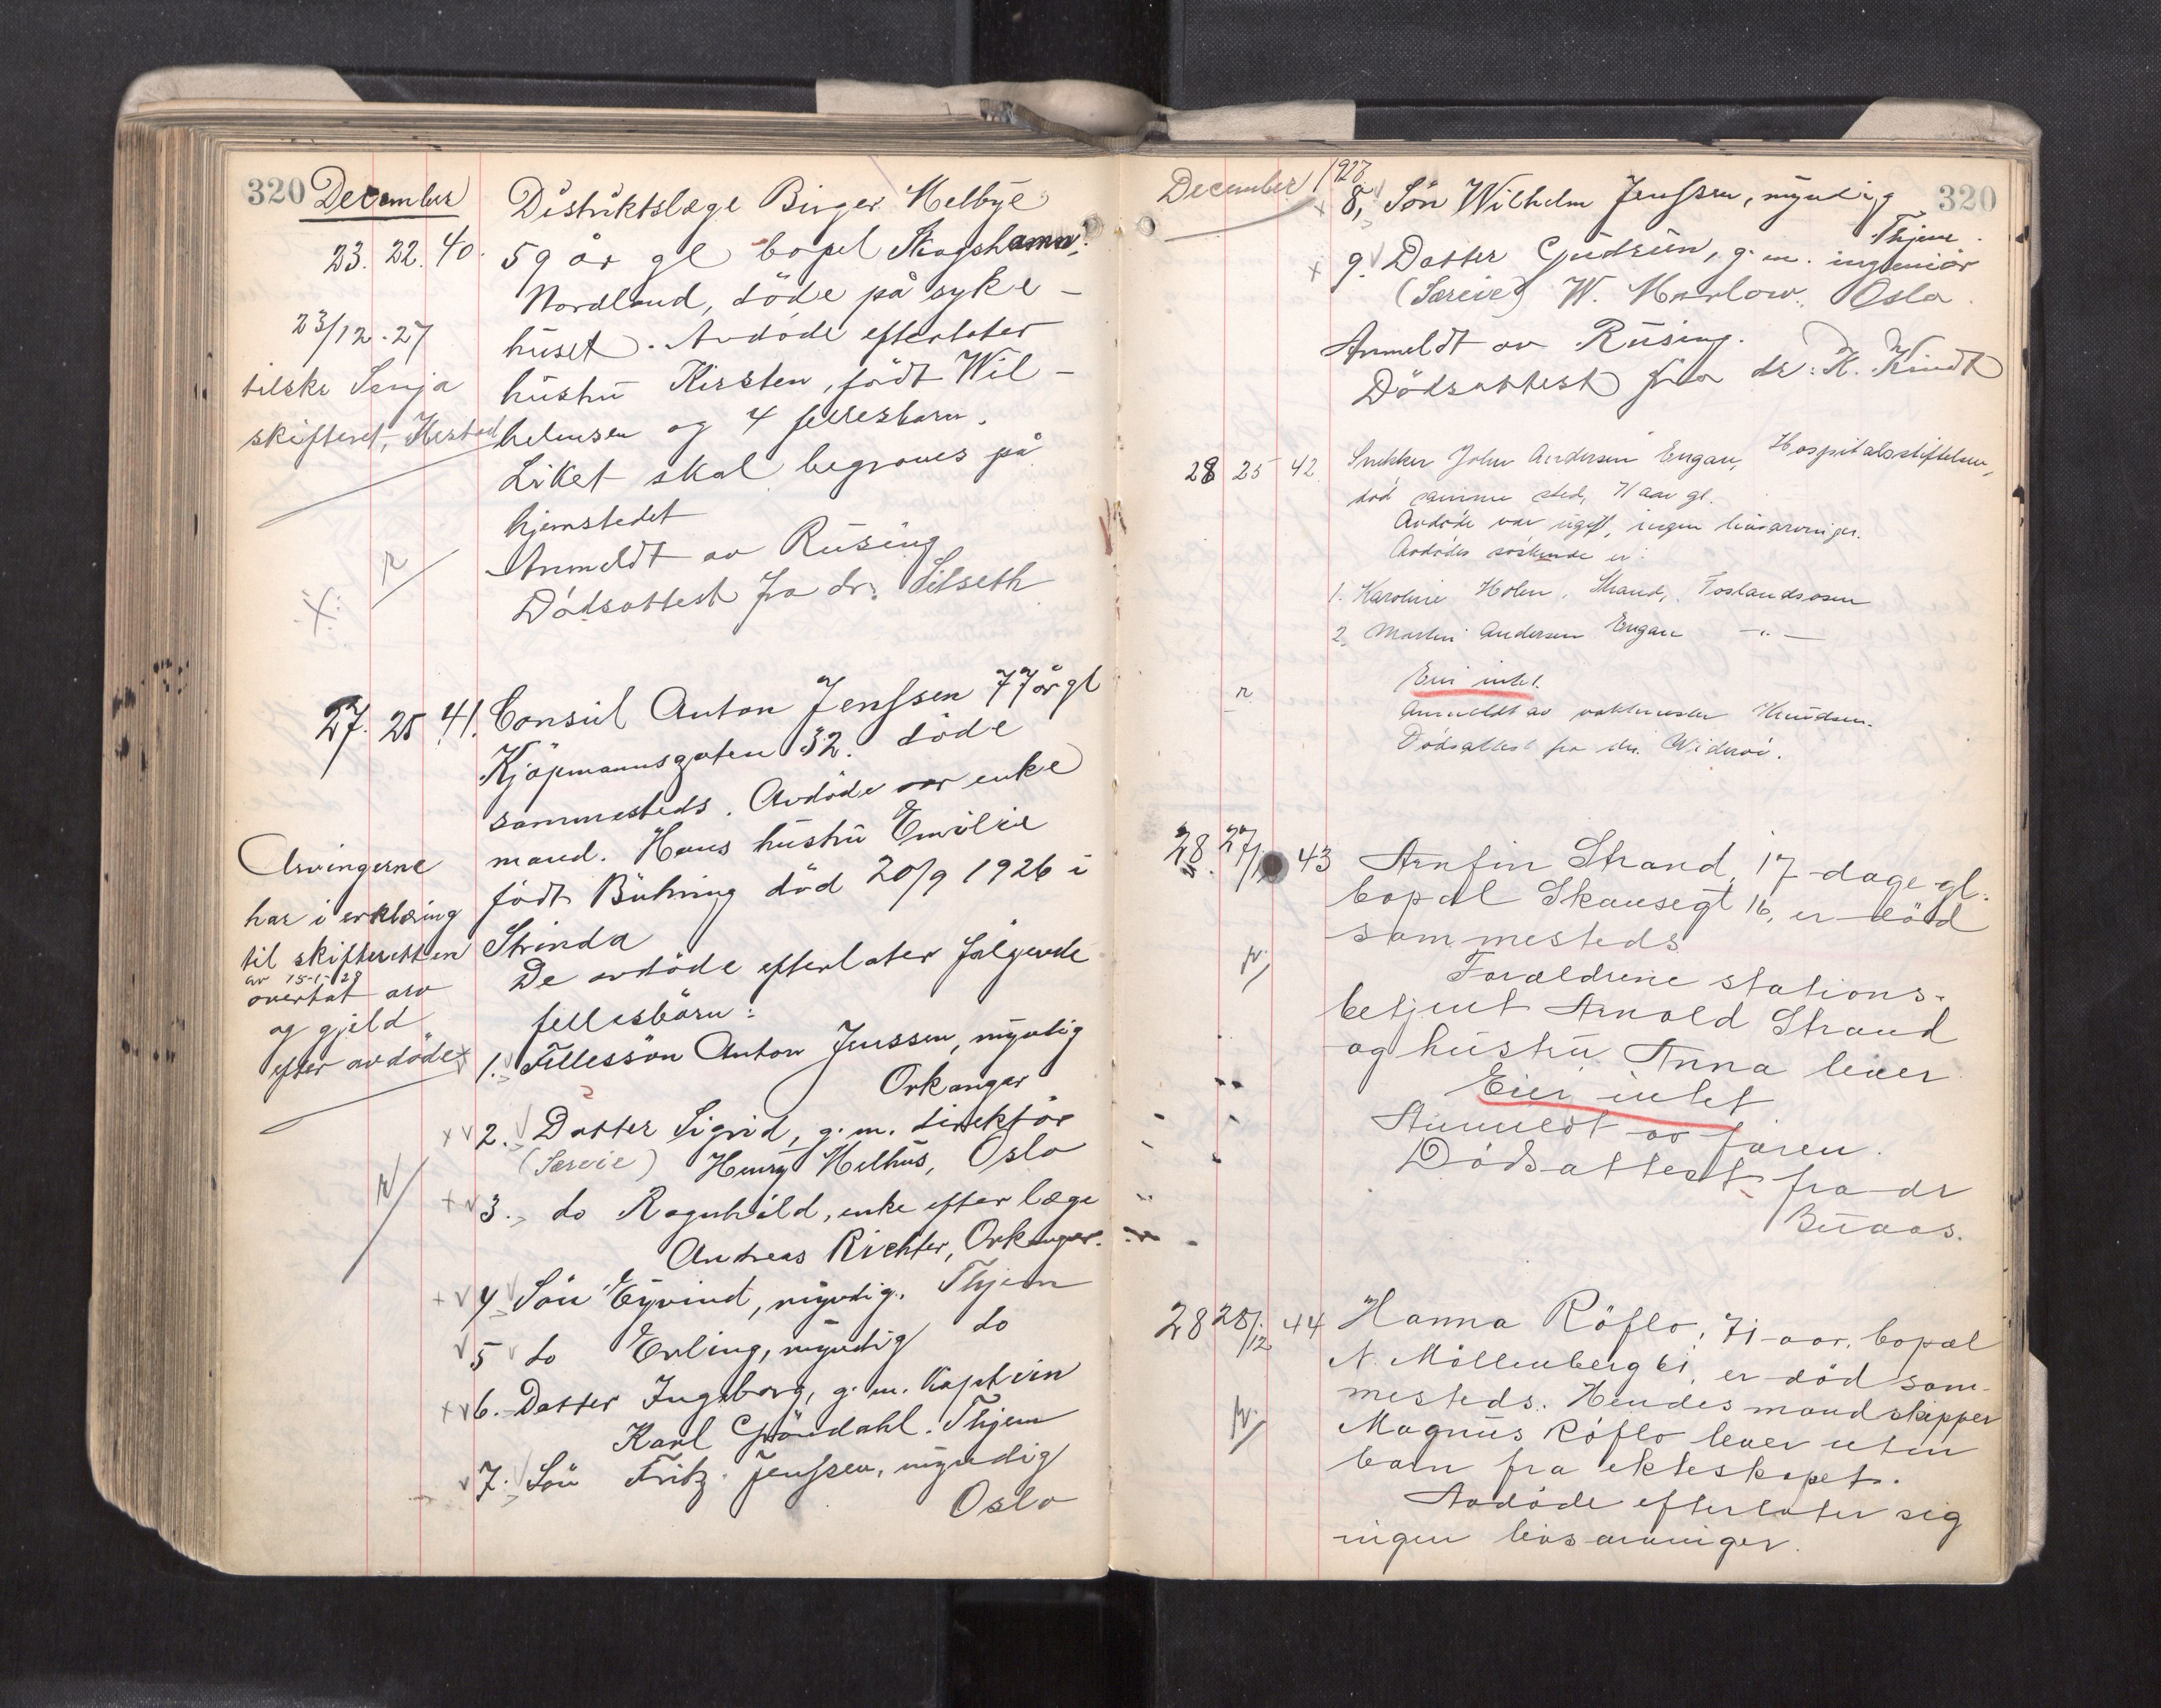 320 December
23. 22. 40. Distriktslæge Birger Melbye
59 år gl bopel Skogshamn,
Nordland, döde på syke-
huset. Avdöde efterlater
hustru Kirsten, födt Wil-
helmsen og 4 fellesbarn.
Liket skal begraves på
hjemstedet
Anmeldt av Rusing
Dödsattest fra dr. Silseth
23/12.27
tilskr Senja
skifteret,
27. 25 41. Consul Anton Jenssen 77 år gl
Kjöpmannsgaten 32. döde
sammesteds. Avdöde var enke
mand. Hans hustru Emilie
födt Bühring död 20/9 1926 i
Strinda
De avdöde efterlater fölgende
fellesbörn:
Arvingerne
har i erklæring
til skifteretten
av 15-1-28
overtat arv
og gjeld
efter avdöde
1. Fellessön Anton Jenssen, myndig
Orkanger
2. Datter Sigrid, g. m. direktör
(Særeie) Henry Melhus, Oslo
3. do Ragnhild, enke efter læge
Andreas Richter, Orkanger.
4 Sön Eyvind, myndig. Thjem
5 do Erling, myndig do
6. Datter Ingeborg, g. m. kaptein
Karl Gröndahl. Thjem
7. Sön Fritz Jenssen, myndig
Oslo
December 1927 320
8, Sön Wilhelm Jenssen, myndig
Thjem.
9. Datter Gudrun, g. m. ingeniör
(Særeie) W. Marlow, Oslo.
Anmeldt av Rusing.
Dödsattest fra dr. K. Kindt
28 25 42. Snekker John Andersen Engan, Hospitalsstiftelsen,
död samme sted, 71 aar gl.
Avdöde var ugift, ingen livsarvinger.
Avdödes söskende er:
1. Karoline Holen, Strand, Foslandsosen
2. Martin Andersen Engan —"—
Eier intet.
Anmeldt av vaktmester Knudsen.
Dödsattest fra dr. Wideröe.
28. 27/12 43 Arnfin Strand, 17 dage gl.
bopæl Skansegt 16, er död
sammesteds
Forældrene stations-
betjent Arnold Strand
og hustru Anna lever
Eier intet
Anmeldt av faren.
Dödsattest fra dr
Buaas.
28 28/12 44 Hanna Röflo, 71 aar, bopæl
N. Möllenberg 61, er död sam-
mesteds. Hendes mand skipper
Magnus Röflo lever uten
barn fra ekteskapet.
Avdöde efterlater sig
ingen livsarvinger.